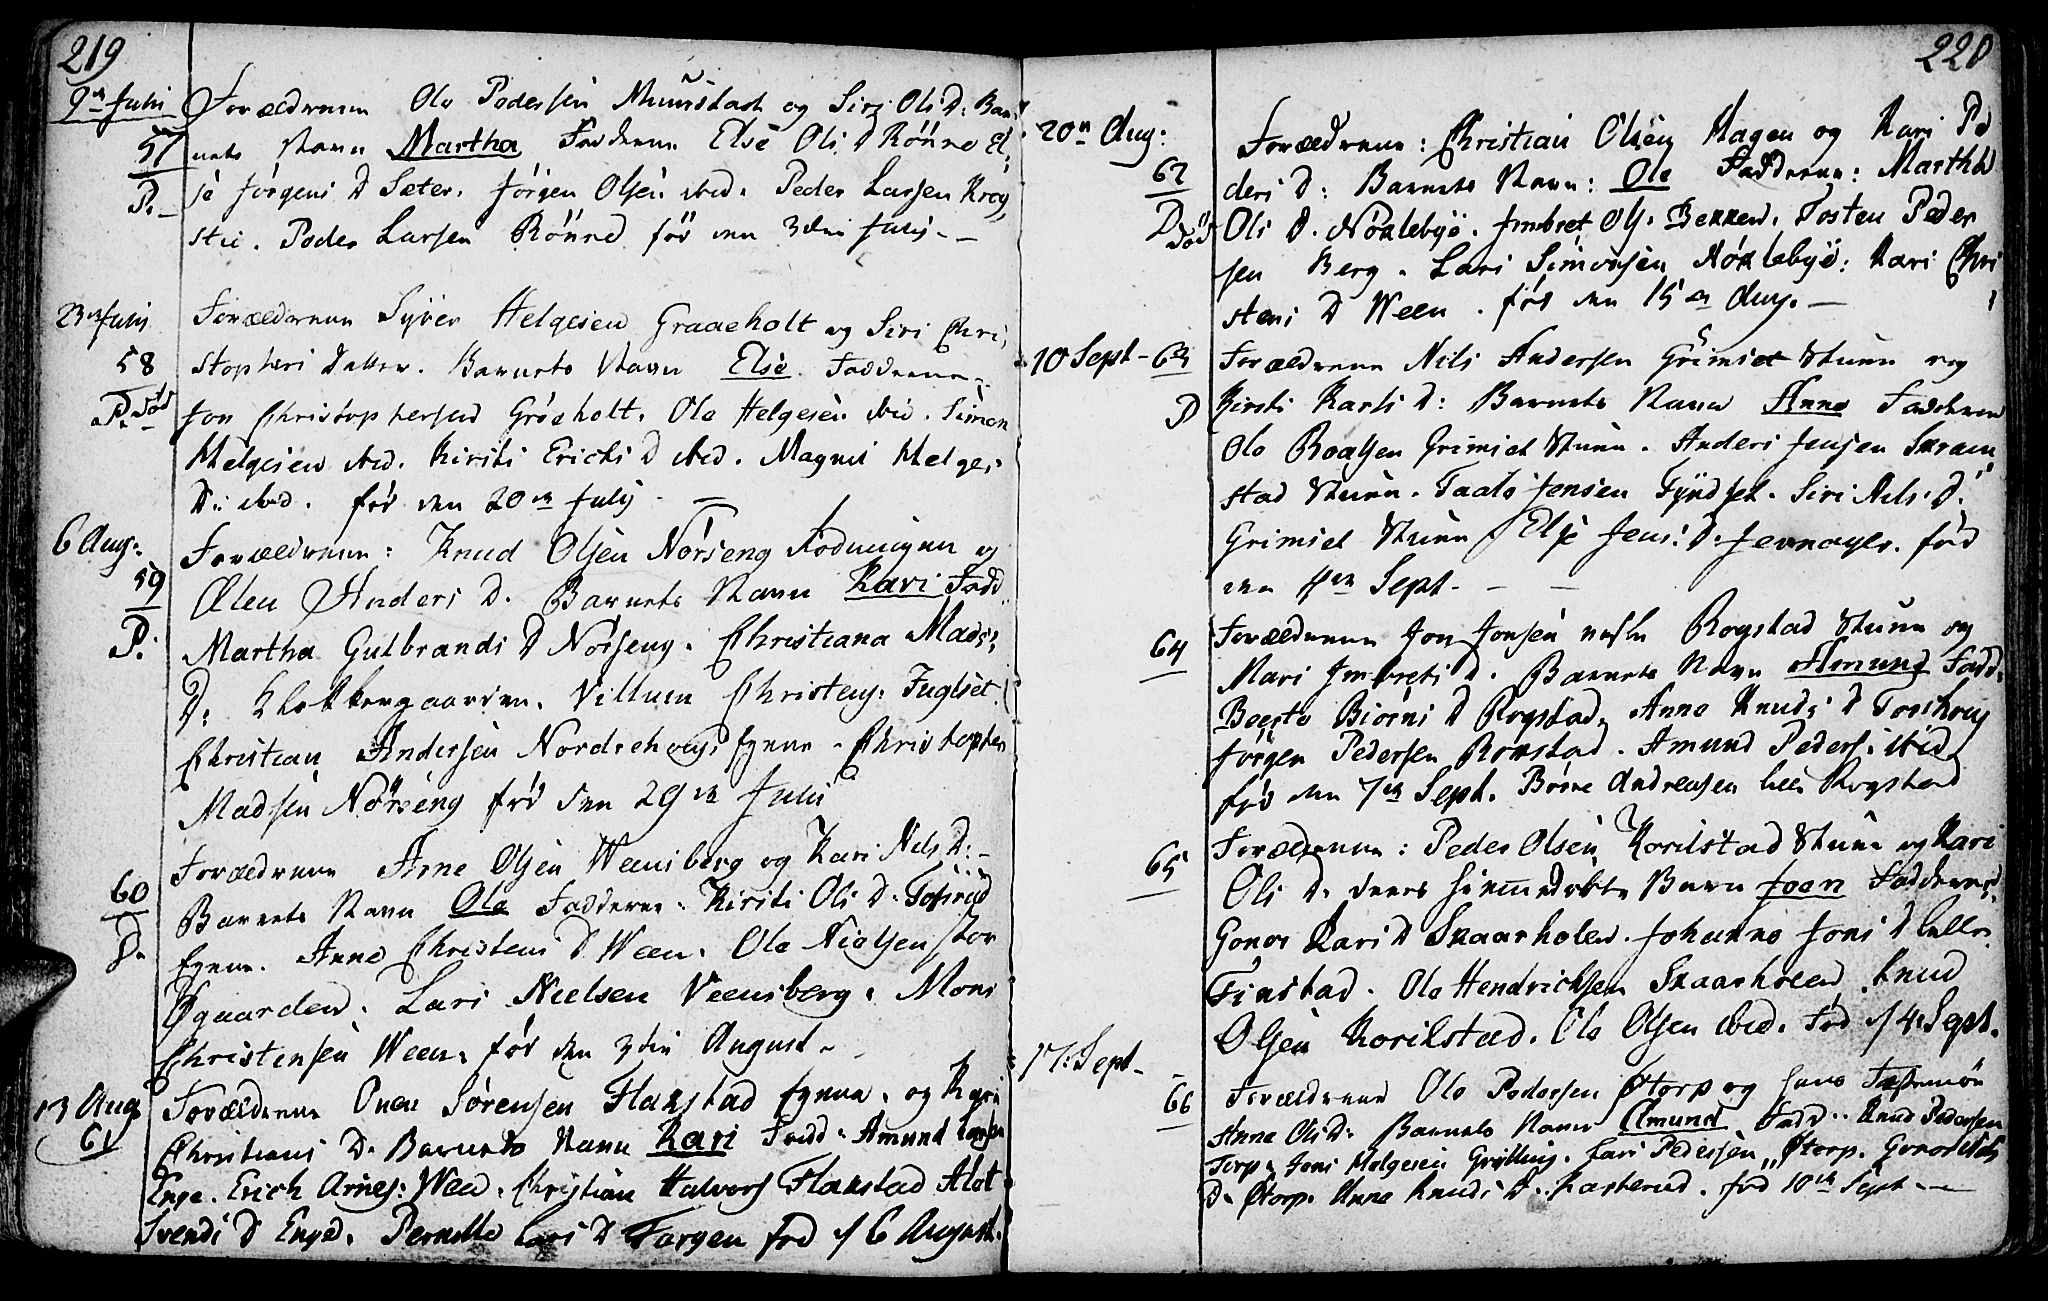 219
9de Julii Forældrene Ole Pedersen Muustad og Siri Ols D: Bar-
57 nets Navn Martha Faddere Else Ols D Rönne El-
P.- se Jörgens D Sæter. Jörgen Olsen ibid. Peder Larsen Krog
stie. Peder Larsen Rönne för den 3die Julij - -
23de Julij Forældrene Syver Helgesen Graaeholt og Siri Chri-
58 stophers Datter. Barnets Navn Else. Fadderne
P. död Jon Christophersen Gröeholt. Ole Helgesen ibid. Simon
Helgesen ibid. Kirsti Erichs D ibid. Magnil Helges
D: ibid. för den 20de Julij - -
6 Aug: Forældrene: Knud Olsen Nörseng Rodningen og
59 Ælen Anders D. Barnets Navn Kari Fadd
P. Martha Gulbrands D Nörseng. Christiana Mads
D: Klokkergaarden. Villum Christens: Fuglset.
Christian Andersen Nordrehougs Egnen - Christopher
Madsen Nörseng föd den 29de Julii
Forældrene Arne Olsen Weensberg og Kari Nels D: -
60 Barnets Navn Ole Fadderne. Kirsti Ols D.
P. Egnen. Anne Christens D Ween. Ole Nielsen Stor
Øgaarden. Lars Nielsen Veensberg. Mons
Christensen Ween. för den 3die August -
13 Aug Forældrene Sörensen Flakstad Egnen. og Kari
61 Christians D. Barnets Navn Kari Fadd: Amund Larsen
Enge. Erich Arnes: Ween. Christian Halvors Flakstad
Svends D Enge. Pernille Lars D Torgen fød d 6 August.
220
20de Aug: Forældrene: Christian Olsen Hagen og Kari Pe
62 ders D: Barnets Navn: Ole Fadderne: Martha
P död Ols D. Nöklebye. Jmbret Ols. Bekken. Tosten Peder
sen Berg. Lars Simonsen Nöklebye: Kari Chri
stens D Ween. för den 15de Aug. -
10 Sept - 63 Forældrene Nils Andersen Grimset Stuen og
P Kirsti Karls D: Barnets Navn Anne Fadderne
Ole Roalsen Grimset Stuen. Anders Jensen Skram
stad Stuen. Jensen Fyndset. Siri Nils: D.
Grimset Stuen Else Jens: D. föd
den 4de Sept - - -
Forældrene Jon Jonsen Rogstad Stuen og
64 Mari Jmbrets D. Barnets Navn Amund Fadd.
Beerte Biörns D Rogstad. Anne Knuds D
Jörgen Pedersen Rokstad. Amund Peders: ibid
föd den 7de Sept. Börre Andreasen Rogstad
Forældrene: Peder Olsen Korilstad Stuen og Kari
65 Ols D. deres Barn Joen Fadderne
Gonor Kari D Skaarholen. Johanne Jons D Lille
Finstad. Ole Hendrichsen Skaarholen. Knud
Olsen Korilstad. Ole Olsen ibid. Föd d 4 Sept.
17: Sept - Forældrene Ole Pedersen Øtorp og hans
66 Anne Ols D. Barnets Navn Amund Fadd: Knud Pedersen
Torp. Jens Helgesen Grylling. Lars Pedersen Øtorp. Gonor
D. Øtorp. Anne Knuds D. föd 10de Sept -